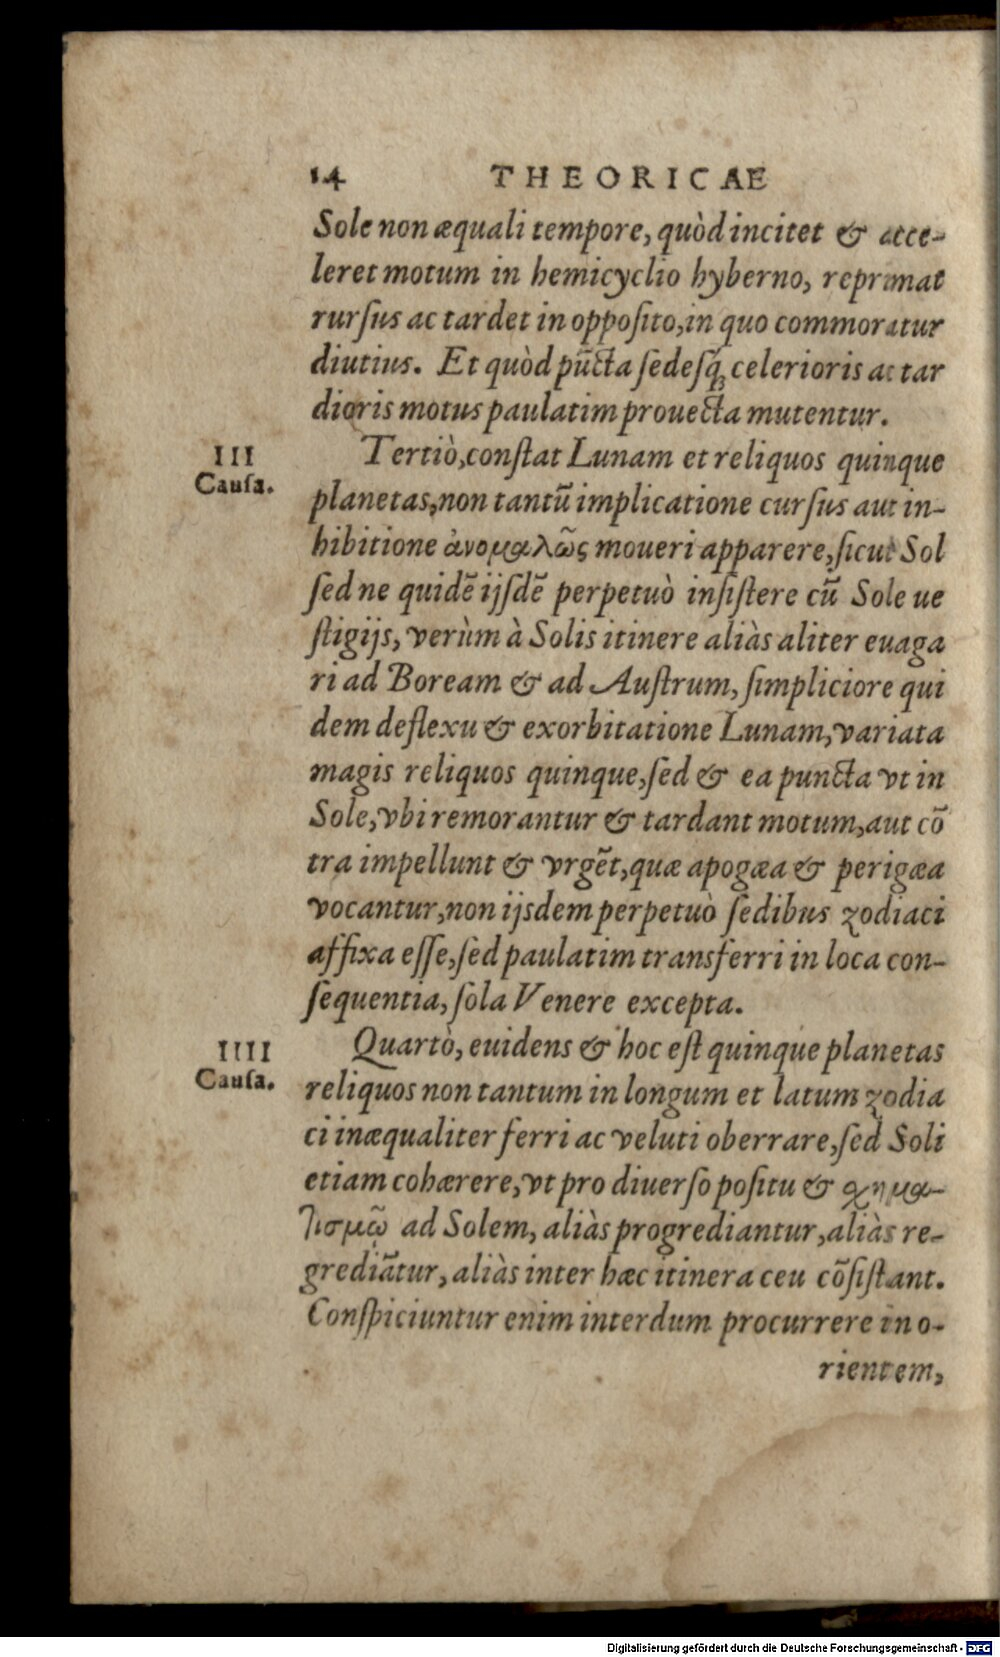 14 THEORICAE
Sole non æquali tempore, quòd incitet & acce-
leret motum in hemicyclio hyberno, reprimat
rursus ac tardet in opposito, in quo commoratur
diutius. Et quòd pūcta sedesq́; celerioris ac tar
dioris motus paulatim prouecta mutentur.
III
Causa.
Tertiò, constat Lunam et reliquos quinque
planetas, non tantū implicatione cursus aut in-
hibitione ἀνομαλῶς moueri apparere, sicut Sol
sed ne quidē ijsdē perpetuò insistere cū Sole ue
stigijs, verùm à Solis itinere aliàs aliter euaga
ri ad Boream & ad Austrum, simpliciore qui
dem deflexu & exorbitatione Lunam, variata
magis reliquos quinque, sed & ea puncta vt in
Sole, vbi remorantur & tardant motum, aut cō
tra impellunt & vrgēt, quæ apogæa & perigæa
vocantur, non ijsdem perpetuò sedibus zodiaci
affixa esse, sed paulatim transferri in loca con-
sequentia, sola Venere excepta.
IIII
Causa.
Quartò, euidens & hoc est quinque planetas
reliquos non tantum in longum et latum zodia
ci inæqualiter ferri ac veluti oberrare, sed Soli
etiam cohærere, vt pro diuerso positu & χημα-
τισμῷ ad Solem, aliàs progrediantur, aliàs re-
grediātur, aliàs inter hæc itinera ceu cōsistant.
Conspiciuntur enim interdum procurrere in o-
rientem,
Digitalisierung gefördert durch die Deutsche Forschungsgemeinschaft - DFG